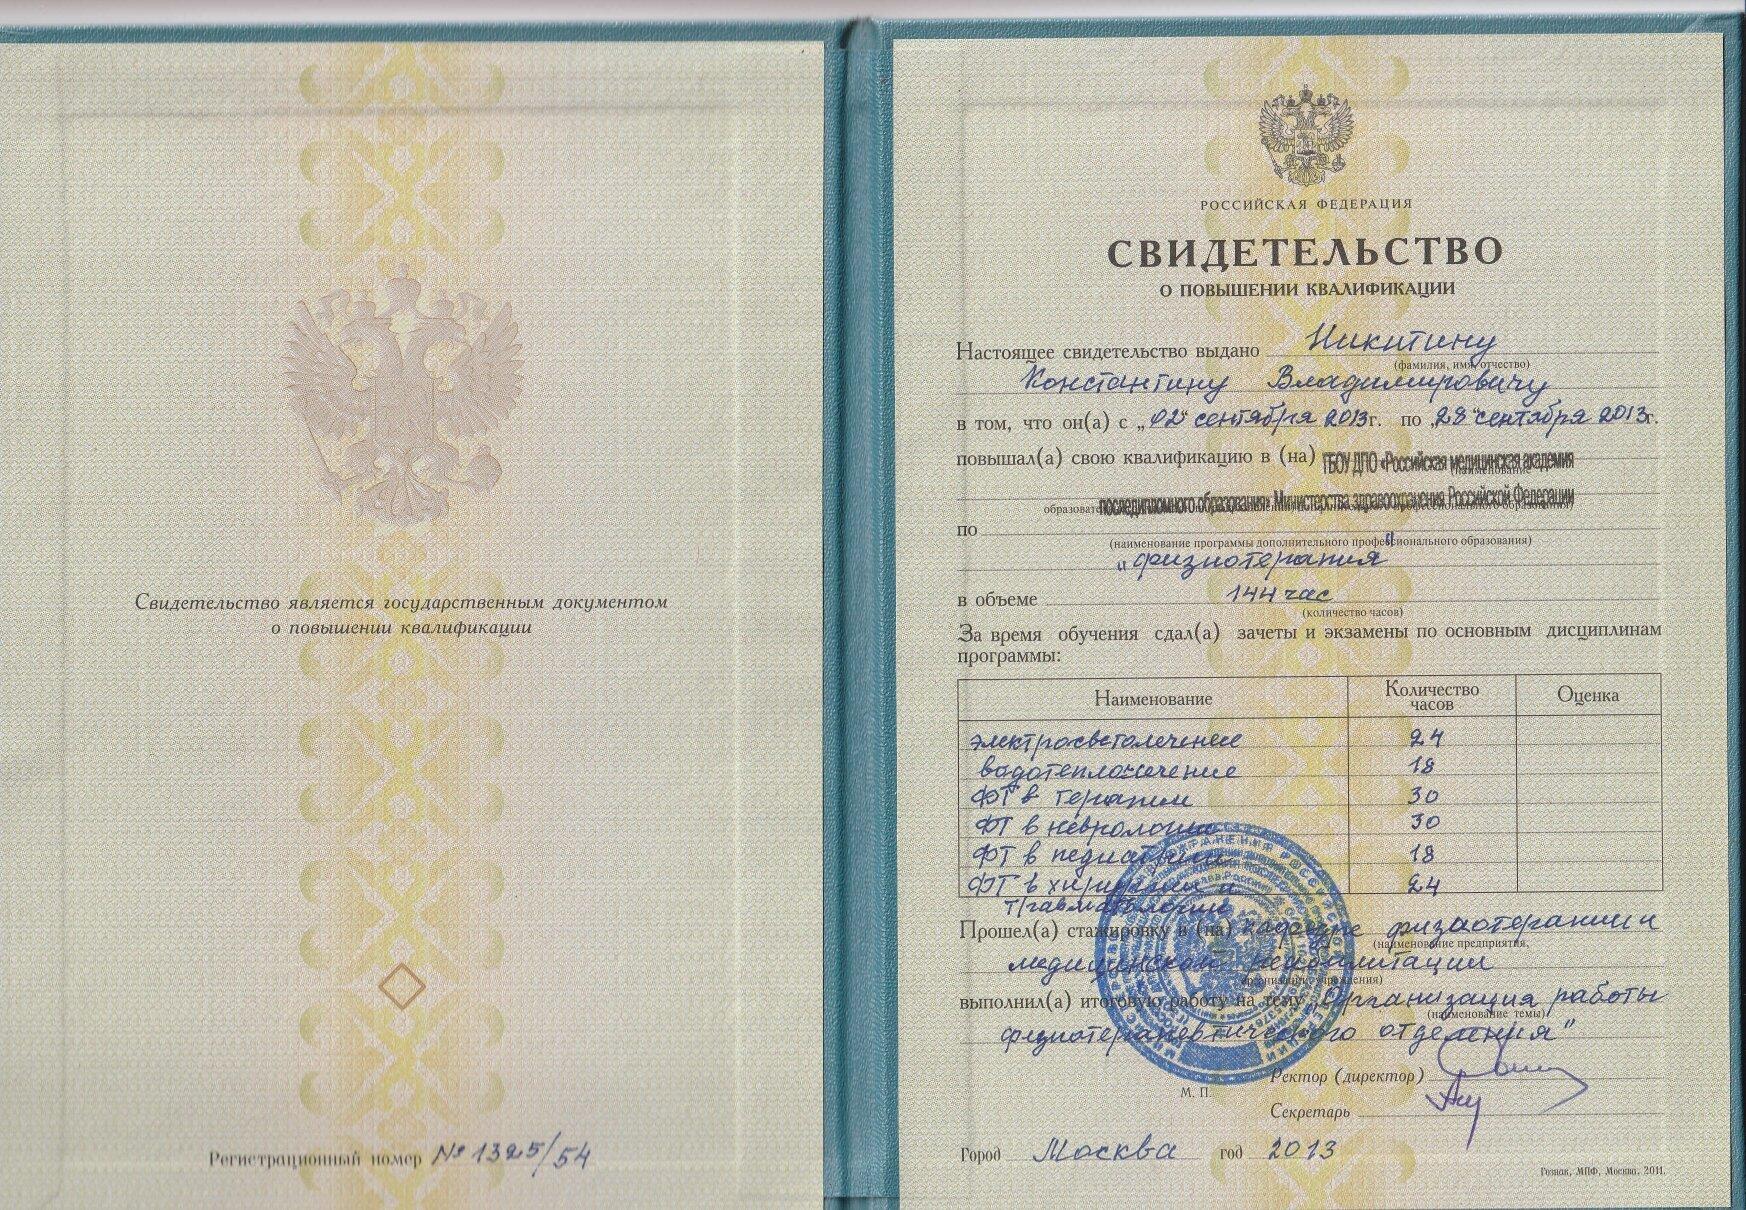 Свидетельство является государственным документом
о повышении квалификации
Регистрационный номер № 1325/54
РОССИЙСКАЯ ФЕДЕРАЦИЯ
СВИДЕТЕЛЬСТВО
О ПОВЫШЕНИИ КВАЛИФИКАЦИИ
Настоящее свидетельство выдано Никитину
(фамилия, имя, отчество)
Константину Владимировичу
в том, что он(а) с „02" сентября 2013г. по „28" сентября 2013г.
повышал(а) свою квалификацию в (на) ГБОУ ДПО «Российская медицинская академия
(наименование
последипломного образования» Министерства здравоохранения Российской Федерации
профессионального образования)
по
(наименование программы дополнительного профессионального образования)
„физиотерапия"
в объеме 144 час
(количество часов)
За время обучения сдал(а) зачеты и экзамены по основным дисциплинам
программы:
Наименование Количество часов Оценка
электросветолечение 24
водотеплолечение 18
ФТ в терапии 30
ФТ в неврологии 30
ФТ в педиатрии 18
ФТ в хирургии и 24
травматологии
Прошел(а) стажировку в (на) кафедре физиотерапии и
(наименование предприятия,
медицинской реабилитации
организации, учреждения)
выполнил(а) итоговую работу на тему „Организация работы
(наименование темы)
физиотерапевтического отделения"
Ректор (директор)
М. П.
Секретарь
Город Москва год 2013
Гознак, МПФ, Москва, 2011.